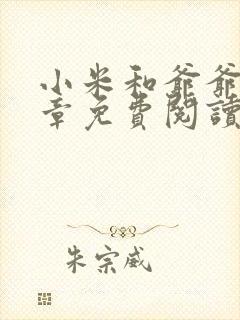 小米和爺爺
章免費閱讀
朱宗威